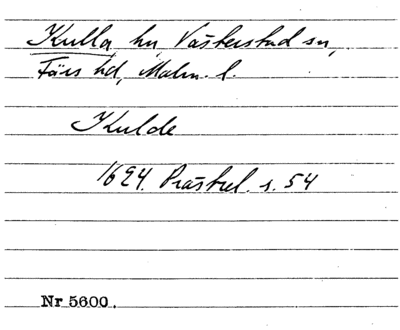 Kulla, hu Västerstad sn,
Färs hd, Malm. l.
Kulde
1624. Prästrel. s. 54
Nr 5600.